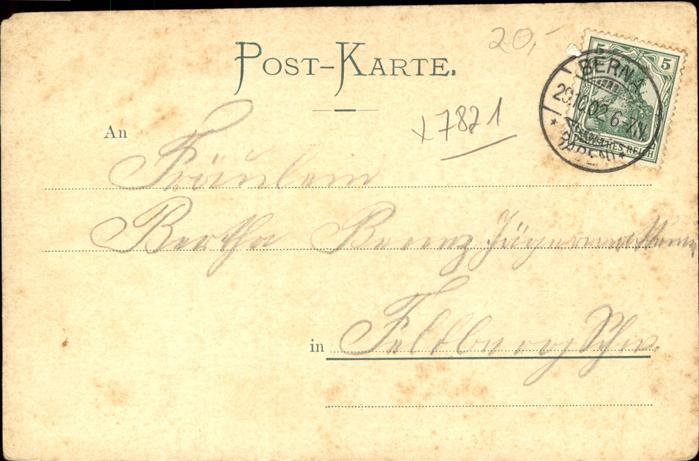 20,-
POST-KARTE.
5 5
BERNA
29.10.02 6-7N.
BADEN
DEUTSCHES REICH
x 7821
An
Fräulein
Bertha
in Feldberg